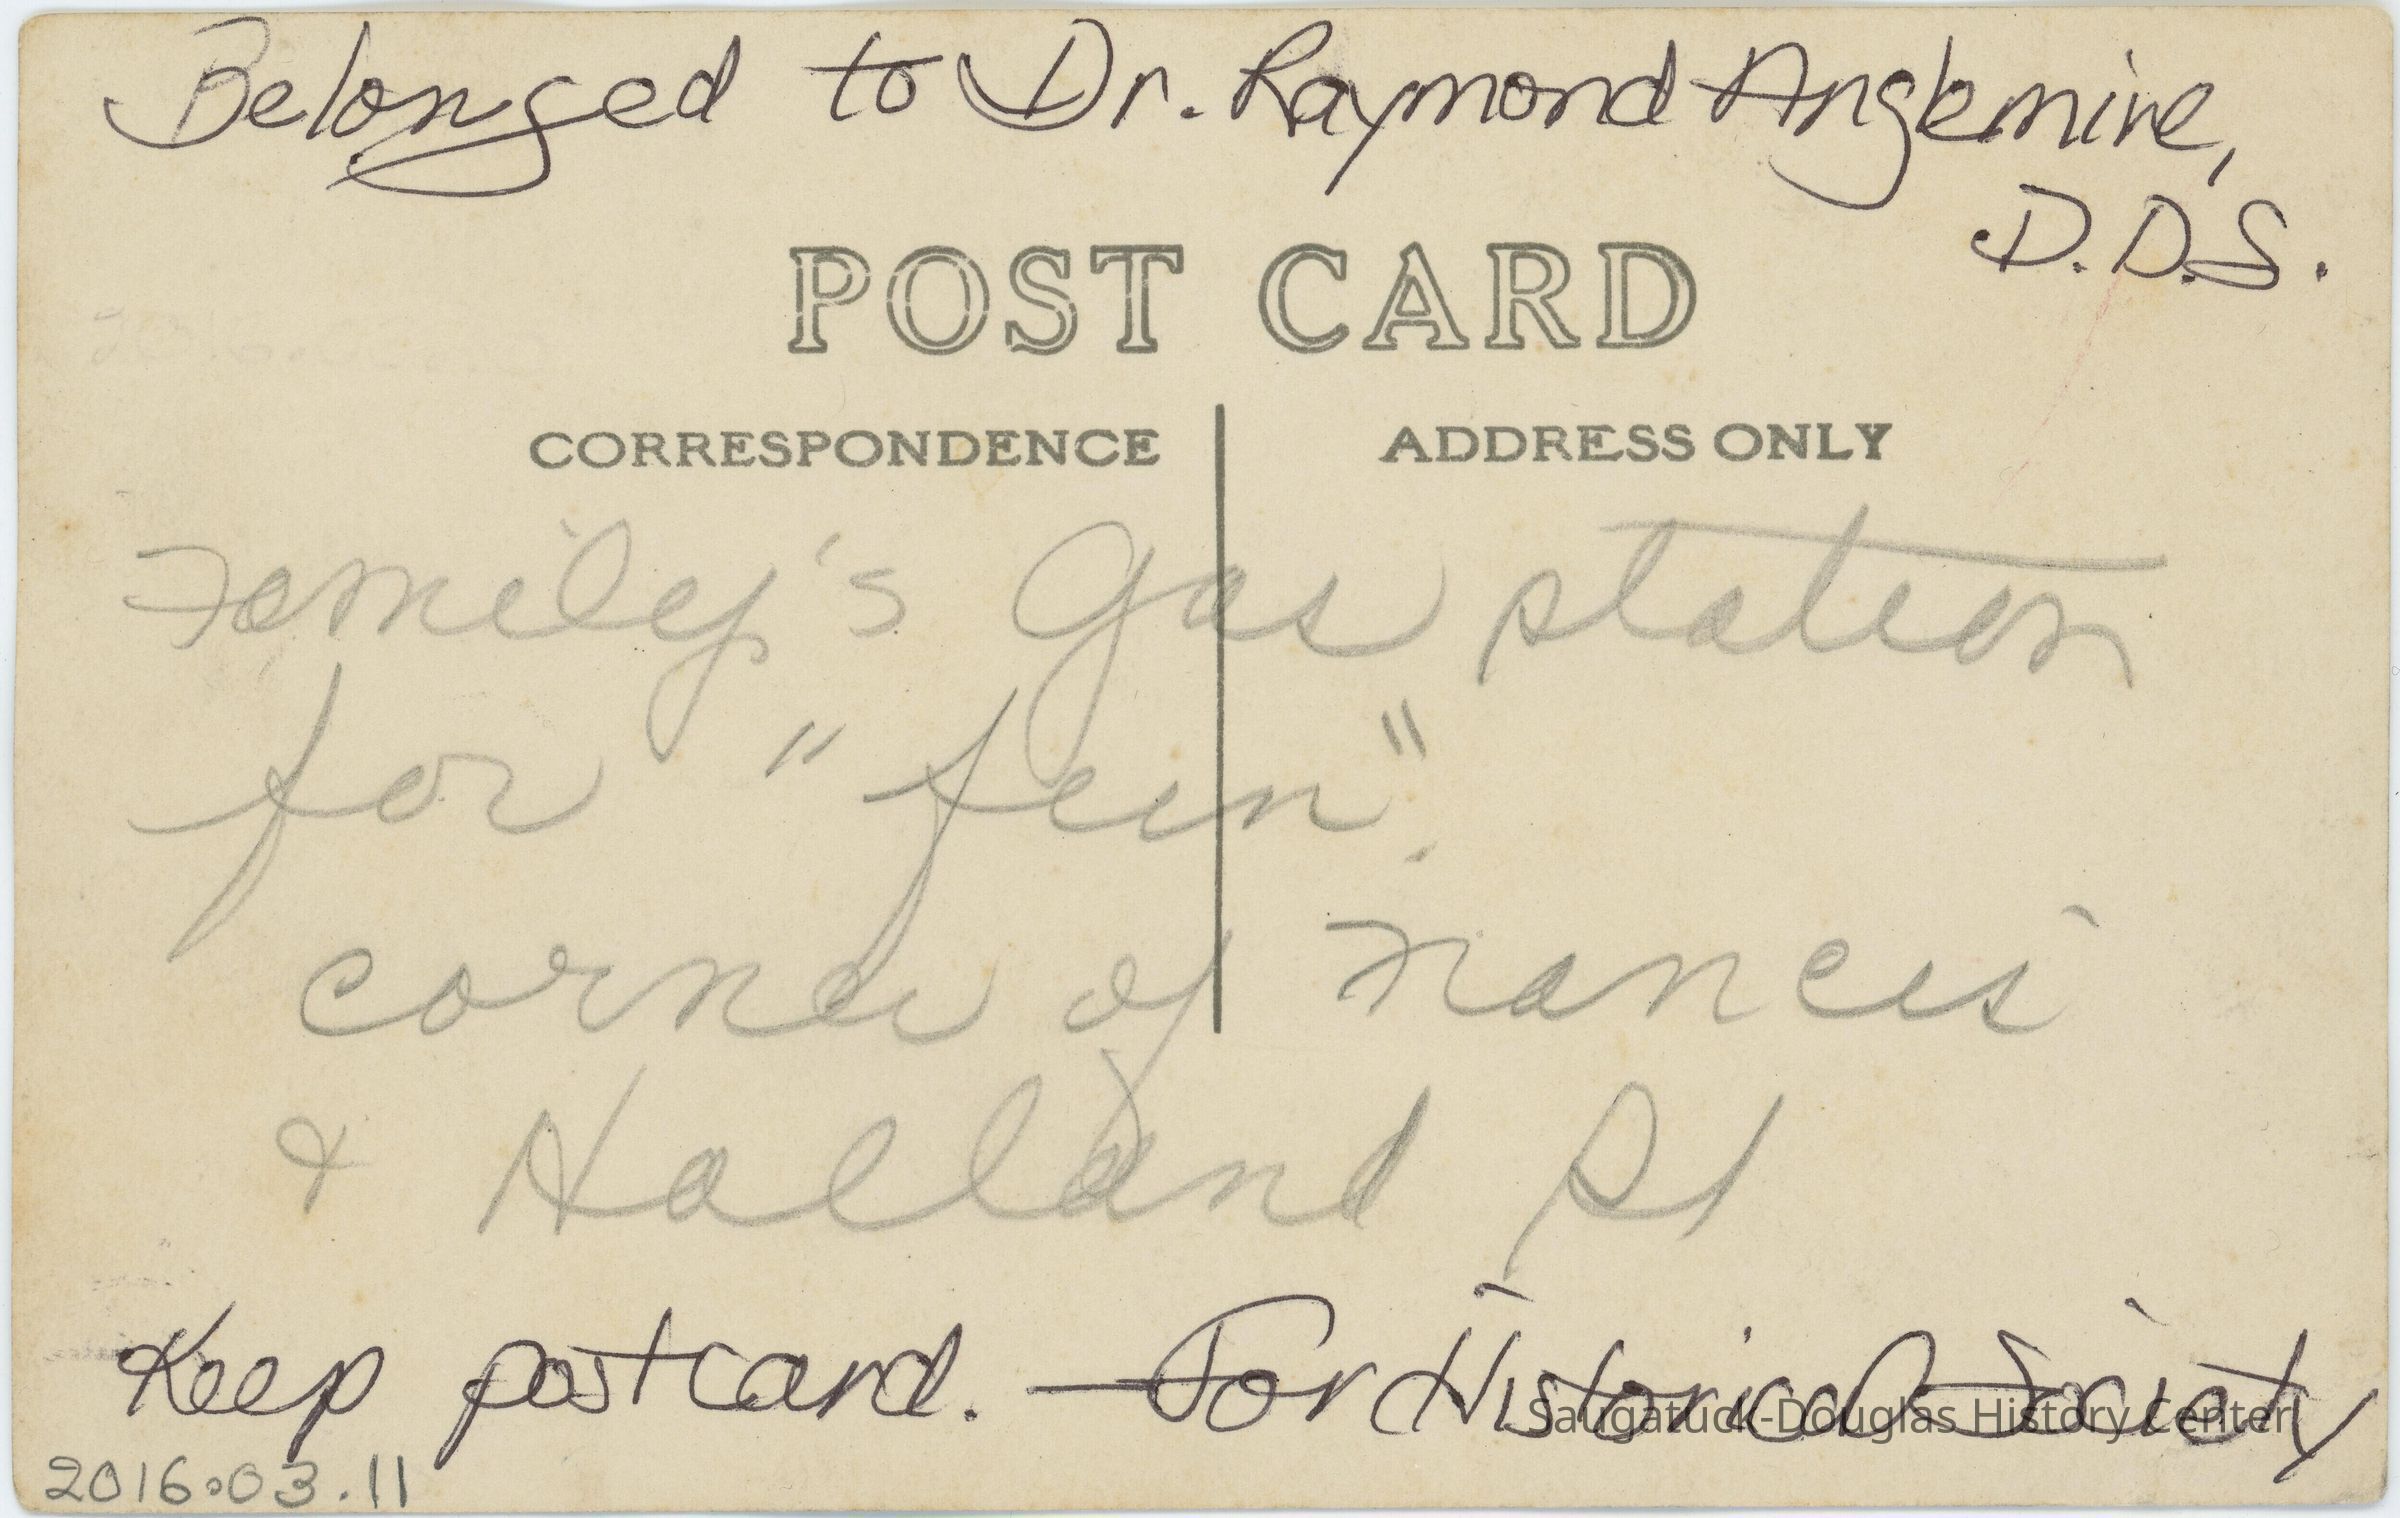 Belonged to Dr. Raymond Anglemire,
D.D.S.
POST CARD
CORRESPONDENCE
ADDRESS ONLY
Family's Gas station
for "fun".
corner of Francis
& Holland St
Keep postcard. - For Historical Society
Saugatuck-Douglas History Center
2016.03.11